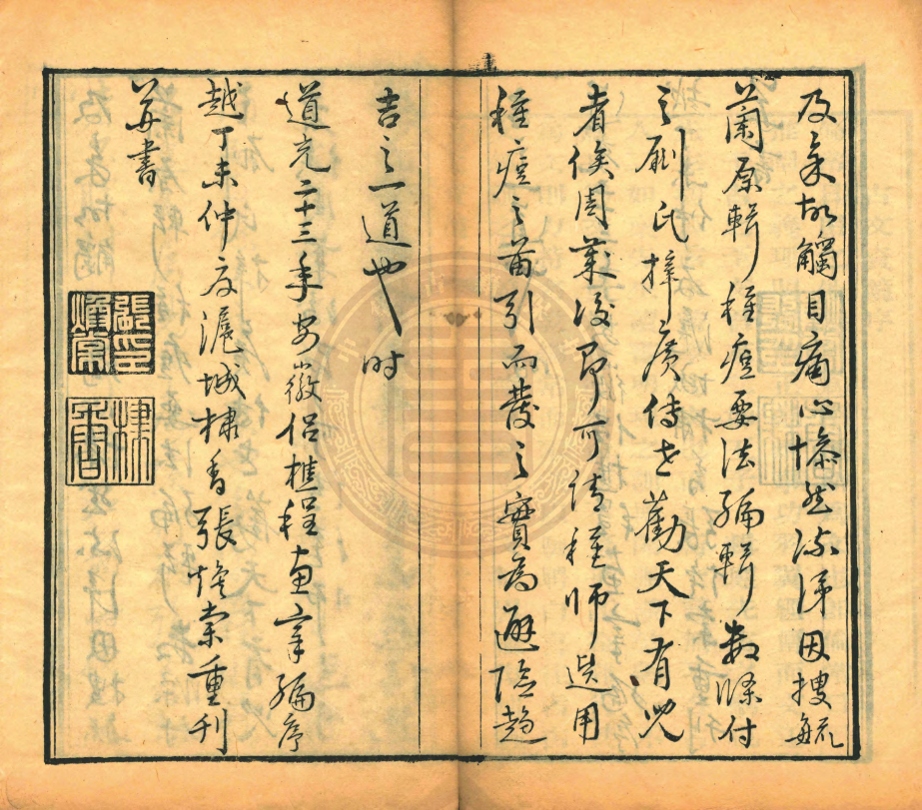 及矣故觸目痛心慘然流涕因搜毓
蘭原輯種痘要法編輯數條付
之剞氏梓廣傳世勸天下有兒
者俟周歲後即可請種師選用
種痘之苗引而發之實為避險趨
吉之一道也时
道光二十三年安徽侶樵程章編序
越丁未仲夏滬城棣香張煥棠重刊
並書
張印煥棠
棣香